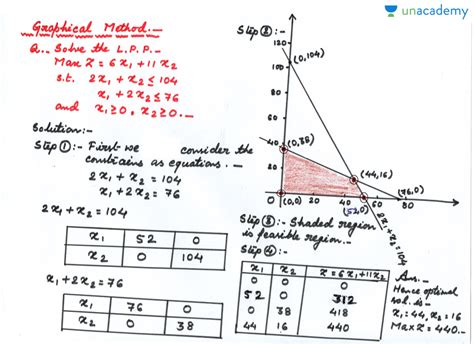 unacademy
Graphical Method.-
Q.. Solve the L.P.P.-
Max Z = 6x₁ + 11x₂
s.t. 2x₁ + x₂ ≤ 104
x₁ + 2x₂ ≤ 76
and x₁ ≥ 0, x₂ ≥ 0.-
Solution:-
Step ①:- First we consider the
as equations.-
2x₁ + x₂ = 104
x₁ + 2x₂ = 76
2x₁ + x₂ = 104
x₁ 52 0
x₂ 0 104
x₁ + 2x₂ = 76
x₁ 76 0
x₂ 0 38
Step ②:-
120
100
80
60
40
20
0
(0,104)
(0,38)
(44,16)
(76,0)
(0,0)
(52,0)
20
40
60
80
2x₁ + x₂ = 104
Step ③:- Shaded region
is feasible region.-
Step ④:-
x₁ x₂ Z = 6x₁ + 11x₂
0 0 0
52 0 312
0 38 418
44 16 440.-
Ans.-
Hence optimal
sol. is -
x₁ = 44, x₂ = 16
Max Z = 440.-